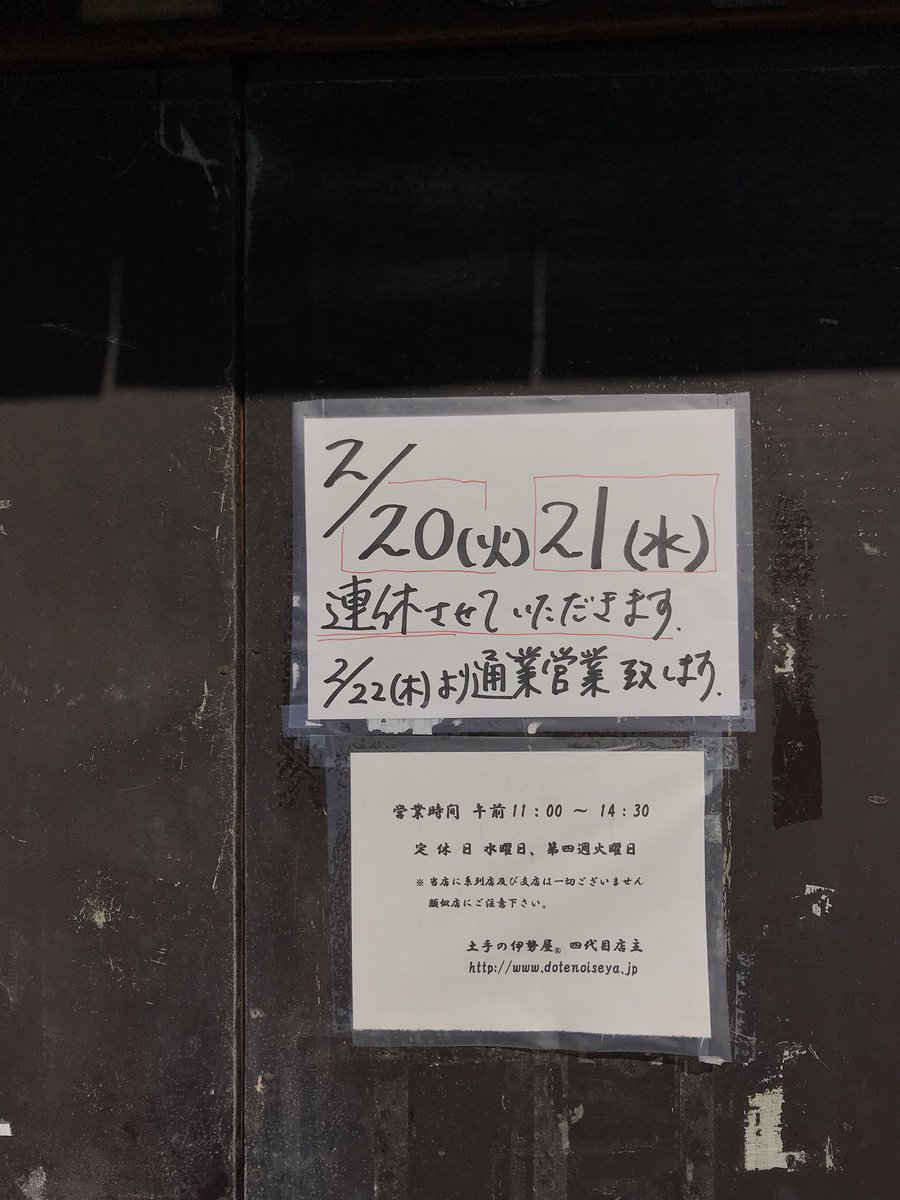 2/20(火)21(水)
連休させていただきます.
2/22(木)より通業営業致します.
営業時間 午前11:00 ~ 14:30
定休日 水曜日、第四週火曜日
※当店に系列店及び支店は一切ございません
類似店にご注意下さい。
土手の伊勢屋® 四代目店主
http://www.dotenoiseya.jp